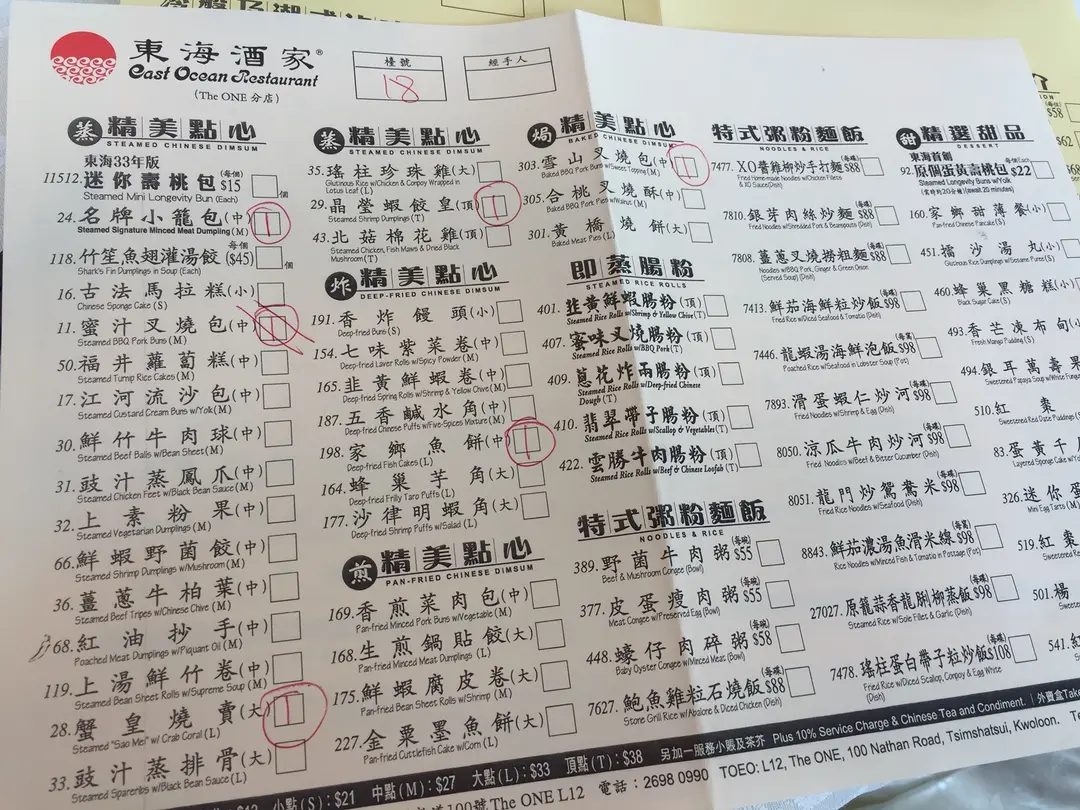 東海酒家®
East Ocean Restaurant
(The ONE 分店)
檯號
18
經手人
蒸 精美點心
STEAMED CHINESE DIMSUM
東海33年版
11512.迷你壽桃包 (每個) $15 個
Steamed Mini Longevity Bun (Each)
24.名牌小籠包(中) 1
Steamed Signature Minced Meat Dumpling (M)
118.竹笙魚翅灌湯餃 每個 ($45) 個
Shark's Fin Dumplings in Soup (Each)
16.古法馬拉糕(小)
Chinese Sponge Cake (S)
11.蜜汁叉燒包(中) 1
Steamed BBQ Pork Buns (M)
50.福井蘿蔔糕(中)
Steamed Turnip Rice Cakes (M)
17.江河流沙包(中)
Steamed Custard Cream Buns w/Yolk (M)
30.鮮竹牛肉球(中)
Steamed Beef Balls w/Bean Sheet (M)
31.豉汁蒸鳳爪(中)
Steamed Chicken Feet w/Black Bean Sauce (M)
32.上素粉果(中)
Steamed Vegetarian Dumplings (M)
66.鮮蝦野菌餃(中)
Steamed Shrimp Dumplings w/Mushroom (M)
36.薑蔥牛柏葉(中)
Steamed Beef Tripes w/Chinese Chive (M)
68.紅油抄手(中)
Poached Meat Dumplings w/Piquant Oil (M)
119.上湯鮮竹卷(中)
Steamed Bean Sheet Rolls w/Supreme Soup (M)
28.蟹皇燒賣(大) 1
Steamed "Sao Mei" w/ Crab Coral (L)
33.豉汁蒸排骨(大)
Steamed Spareribs w/Black Bean Sauce (L)
蒸 精美點心
STEAMED CHINESE DIMSUM
35.瑤柱珍珠雞(大)
Glutinous Rice w/Chicken & Conpoy Wrapped in
Lotus Leaf (L)
29.晶瑩蝦餃皇(頂) 1
Steamed Shrimp Dumplings (T)
43.北菇棉花雞(頂)
Steamed Chicken, Fish Maws & Dried Black
Mushroom (T)
炸 精美點心
DEEP-FRIED CHINESE DIMSUM
191.香炸饅頭(小)
Deep-fried Buns (S)
154.七味紫菜卷(中)
Deep-fried Laver Rolls w/Spicy Powder (M)
165.韭黃鮮蝦卷(中)
Deep-fried Spring Rolls w/Shrimp & Yellow Chive (M)
187.五香鹹水角(中)
Deep-fried Chinese Puffs w/Five-Spices Mixture (M)
198.家鄉魚餅(中) 1
Deep-fried Fish Cakes (L)
164.蜂巢芋角(大)
Deep-fried Frilly Taro Puffs (L)
177.沙律明蝦角(大)
Deep-fried Shrimp Puffs w/Salad (L)
煎 精美點心
PAN-FRIED CHINESE DIMSUM
169.香煎菜肉包(中)
Pan-fried Minced Pork Buns w/Vegetable (M)
168.生煎鍋貼餃(大)
Pan-fried Minced Meat Dumplings (L)
175.鮮蝦腐皮卷(大)
Pan-fried Bean Sheet Rolls w/Shrimp (M)
227.金粟墨魚餅(大)
Pan-fried Cuttlefish Cake w/Corn (L)
焗 精美點心
BAKED CHINESE DIMSUM
303.雪山叉燒包(中) 1
Baked BBQ Pork Buns w/Sweet Topping (M)
305.合桃叉燒酥(中)
Baked BBQ Pork Pies w/Walnut (M)
301.黃橋燒餅(大)
Baked Meat Pies (L)
即蒸腸粉
STEAMED RICE ROLLS
401.韭黃鮮蝦腸粉(頂)
Steamed Rice Rolls w/Shrimp & Yellow Chive (T)
407.蜜味叉燒腸粉(頂)
Steamed Rice Rolls w/BBQ Pork (T)
409.蔥花炸兩腸粉(頂)
Steamed Rice Rolls w/Deep-fried Chinese
Dough (T)
410.翡翠帶子腸粉(頂)
Steamed Rice Rolls w/Scallop & Vegetables (T)
422.雲勝牛肉腸粉(頂)
Steamed Rice Rolls w/Beef & Chinese Loofah (T)
特式粥粉麵飯
NOODLES & RICE
389.野菌牛肉粥 (每碗) $55
Beef & Mushroom Congee (Bowl)
377.皮蛋瘦肉粥 (每碗) $55
Meat Congee w/Preserved Egg (Bowl)
448.蠔仔肉碎粥 (每碗) $58
Baby Oyster Congee w/Minced Meat (Bowl)
7627.鮑魚雞粒石燒飯 (每碟) $88
Stone Grill Rice w/Abalone & Diced Chicken (Dish)
特式粥粉麵飯
NOODLES & RICE
7477.XO醬雞柳炒手打麵 (每碟) $88
Fried Home-made Noodles w/Chicken Fillets
& XO Sauce (Dish)
7810.銀芽肉絲炒麵 (每碟) $88
Fried Noodles w/Shredded Pork & Beansprouts (Dish)
7808.薑蔥叉燒撈粗麵 (每碟) $88
Noodles w/BBQ Pork, Ginger & Green Onion
(Served Soup) (Dish)
7413.鮮茄海鮮粒炒飯 (每碟) $98
Fried Rice w/Diced Seafood & Tomato (Dish)
7446.龍蝦湯海鮮泡飯 (每碟) $98
Poached Rice w/Seafood in Lobster Soup (Pot)
7893.滑蛋蝦仁炒河 (每碟) $98
Fried Noodles w/Shrimp & Egg (Dish)
8050.涼瓜牛肉炒河 (每碟) $98
Fried Noodles w/Beef & Bitter Cucumber (Dish)
8051.龍門炒鴛鴦米 (每碟) $98
Fried Rice Noodles w/Seafood (Dish)
8843.鮮茄濃湯魚滑米線 (每窩) $98
Rice Noodles w/Minced Fish & Tomato in Pottage (Pot)
27027.原籠蒜香龍脷柳蒸飯 (每碟) $98
Steamed Rice w/Sole Fillet & Garlic (Dish)
7478.瑤柱蛋白帶子粒炒飯 (每碟) $108
Fried Rice w/Diced Scallop, Conpoy & Egg White
(Dish)
甜 精選甜品
DESSERT
東海首創
92.原個蛋黃壽桃包 (每個)Each $22
Steamed Longevity Buns w/Yolk
(需時約20分鐘)(await 20 minutes)
160.家鄉甜薄餐(小)
Pan-fried Chinese Pancake (S)
451.擂沙湯丸(小)
Glutinous Rice Dumplings w/Sesame Puree (S)
460.蜂巢黑糖糕(小)
Black Sugar Cake (S)
493.香芒凍布甸(小)
Fresh Mango Pudding (S)
494.銀耳萬壽果
Steamed Papaya Soup w/White Fung
510.紅棗
Steamed Red Date Pudding
83.蛋黃千
Layered Sponge Cake w/Yolk
326.迷你蛋
Mini Egg Tarts (M)
519.紅棗
Sweetened Re
501.楊
Sweetened
541.紅
Sweetened R
小點(S):$21 中點(M):$27 大點(L):$33 頂點(T):$38 另加一服務小賬及茶芥 Plus 10% Service Charge & Chinese Tea and Condiment. | 外賣盒Take
100號The ONE L12 電話:2698 0990 TOEO: L12, The ONE, 100 Nathan Road, Tsimshatsui, Kowloon.
$58
$62